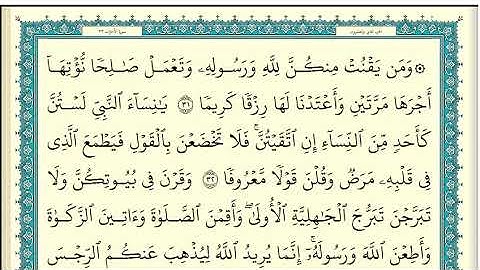 سورة الأحزاب ٣٣ الجزء الثاني والعشرون
۞ وَمَن يَقۡنُتۡ مِنكُنَّ لِلَّهِ وَرَسُولِهِۦ وَتَعۡمَلۡ صَٰلِحٗا نُّؤۡتِهَآ
أَجۡرَهَا مَرَّتَيۡنِ وَأَعۡتَدۡنَا لَهَا رِزۡقٗا كَرِيمٗا ٣١ يَٰنِسَآءَ ٱلنَّبِيِّ لَسۡتُنَّ
كَأَحَدٖ مِّنَ ٱلنِّسَآءِ إِنِ ٱتَّقَيۡتُنَّۚ فَلَا تَخۡضَعۡنَ بِٱلۡقَوۡلِ فَيَطۡمَعَ ٱلَّذِي
فِي قَلۡبِهِۦ مَرَضٞ وَقُلۡنَ قَوۡلٗا مَّعۡرُوفٗا ٣٢ وَقَرۡنَ فِي بُيُوتِكُنَّ وَلَا
تَبَرَّجۡنَ تَبَرُّجَ ٱلۡجَٰهِلِيَّةِ ٱلۡأُولَىٰۖ وَأَقِمۡنَ ٱلصَّلَوٰةَ وَءَاتِينَ ٱلزَّكَوٰةَ
وَأَطِعۡنَ ٱللَّهَ وَرَسُولَهُۥٓۚ إِنَّمَا يُرِيدُ ٱللَّهُ لِيُذۡهِبَ عَنكُمُ ٱلرِّجۡسَ